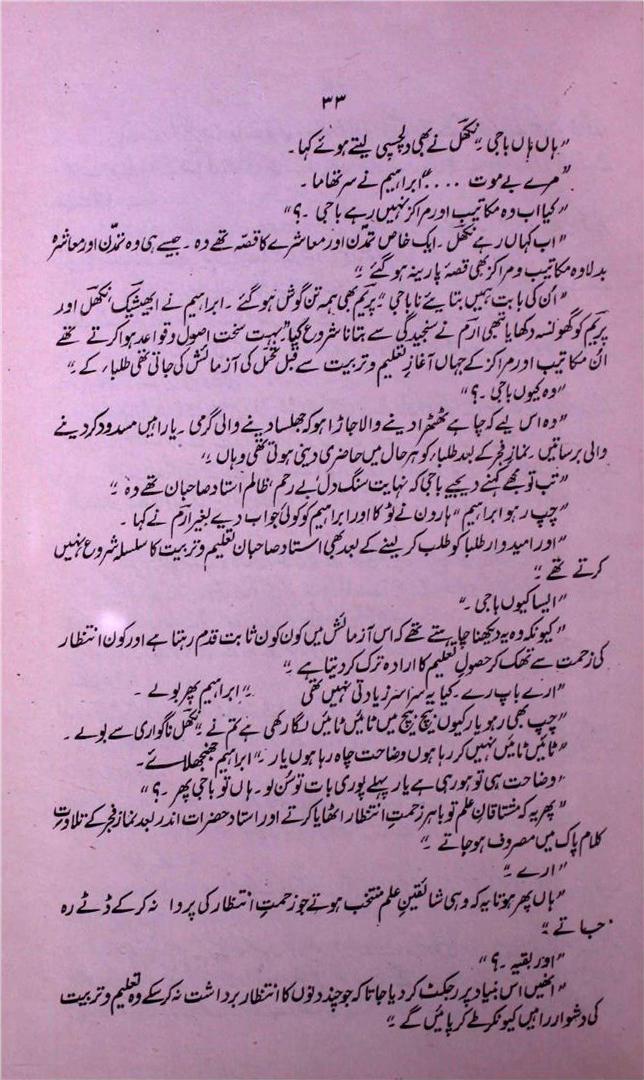 ۳۳
”ہاں ہاں باجی ۔“ نکھل نے بھی دلچسپی لیتے ہوئے کہا ۔
”مرے بے موت ....“ ابراہیم نے سر تھاما ۔
”کیا اب وہ مکاتیب اور مراکز نہیں رہے باجی ۔؟“
”اب کہاں رہے نکھل ۔ ایک خاص تمدّن اور معاشرے کا قصّہ تھے وہ ۔ جیسے ہی وہ تمدّن اور معاشرہ
بدلا وہ مکاتیب و مراکز بھی قصۂ پارینہ ہو گئے ۔“
”اُن کی بابت ہمیں بتائیے نا باجی “ پریّم بھی ہمہ تن گوش ہو گئے ۔ ابراہیم نے ابھیشیک، نکھل اور
پریم کو گھونسہ دکھایا تبھی ارم نے سنجیدگی سے بتانا شروع کیا ”بہت سخت اصول و قواعد ہوا کرتے تھے
اُن مکاتیب اور مراکز کے جہاں آغازِ تعلیم و تربیت سے قبل تحمّل کی آزمائش کی جاتی تھی طلباء کے ۔“
”وہ کیوں باجی ۔؟“
”وہ اس لیے کہ چاہے ٹھٹھرا دینے والا جاڑا ہو کہ جھلسا دینے والی گرمی ۔ یا راہیں مسدود کر دینے
والی برساتیں ۔ نمازِ فجر کے بعد طلباء کو ہر حال میں حاضری دینی ہوتی تھی وہاں ۔“
”تب تو مجھے کہنے دیجیے باجی کہ نہایت سنگ دل بے رحم ، ظالم استاد صاحبان تھے وہ ۔“
”چپ رہو ابراہیم “ ہارون نے ٹوکا اور ابراہیم کو کوئی جواب دیے بغیر ارم نے کہا ۔
”اور امیدوار طلبا کو طلب کر لینے کے بعد بھی استاد صاحبان تعلیم و تربیت کا سلسلہ شروع نہیں
کرتے تھے ۔“
”ایسا کیوں باجی ۔“
”کیونکہ وہ یہ دیکھنا چاہتے تھے کہ اس آزمائش میں کون کون ثابت قدم رہتا ہے اور کون انتظار
کی زحمت سے تھک کر حصولِ تعلیم کا ارادہ ترک کر دیتا ہے ۔“
”ارے باپ رے ۔ کیا یہ سراسر زیادتی نہیں تھی ۔“ ابراہیم پھر بولے ۔
”چپ بھی رہو یار کیوں بیچ بیچ میں ٹائیں ٹائیں لگا رکھی ہے تم نے ۔“ نکھل ناگواری سے بولے ۔
”ٹائیں ٹائیں نہیں کر رہا ہوں وضاحت چاہ رہا ہوں یار ۔“ ابراہیم جھنجھلائے ۔
”وضاحت ہی تو ہو رہی ہے یار پہلے پوری بات تو سُن لو ۔ ہاں تو باجی پھر ۔؟“
”پھر یہ کہ مشتاقانِ علم تو باہر زحمتِ انتظار اٹھایا کرتے اور استاد حضرات اندر بعد نمازِ فجر کے تلاوت
کلام پاک میں مصروف ہو جاتے ۔“
”ارے ۔“
”ہاں پھر ہوتا یہ کہ وہی شائقینِ علم منتخب ہوتے جو زحمتِ انتظار کی پروا نہ کر کے ڈٹے رہ
جاتے ۔“
”اور بقیہ ۔؟“
”انھیں اس بنیاد پر رجکٹ کر دیا جاتا کہ جو چند دنوں کا انتظار برداشت نہ کر سکے وہ تعلیم و تربیت
کی دشوار راہیں کیونکر طے کر پائیں گے ۔“